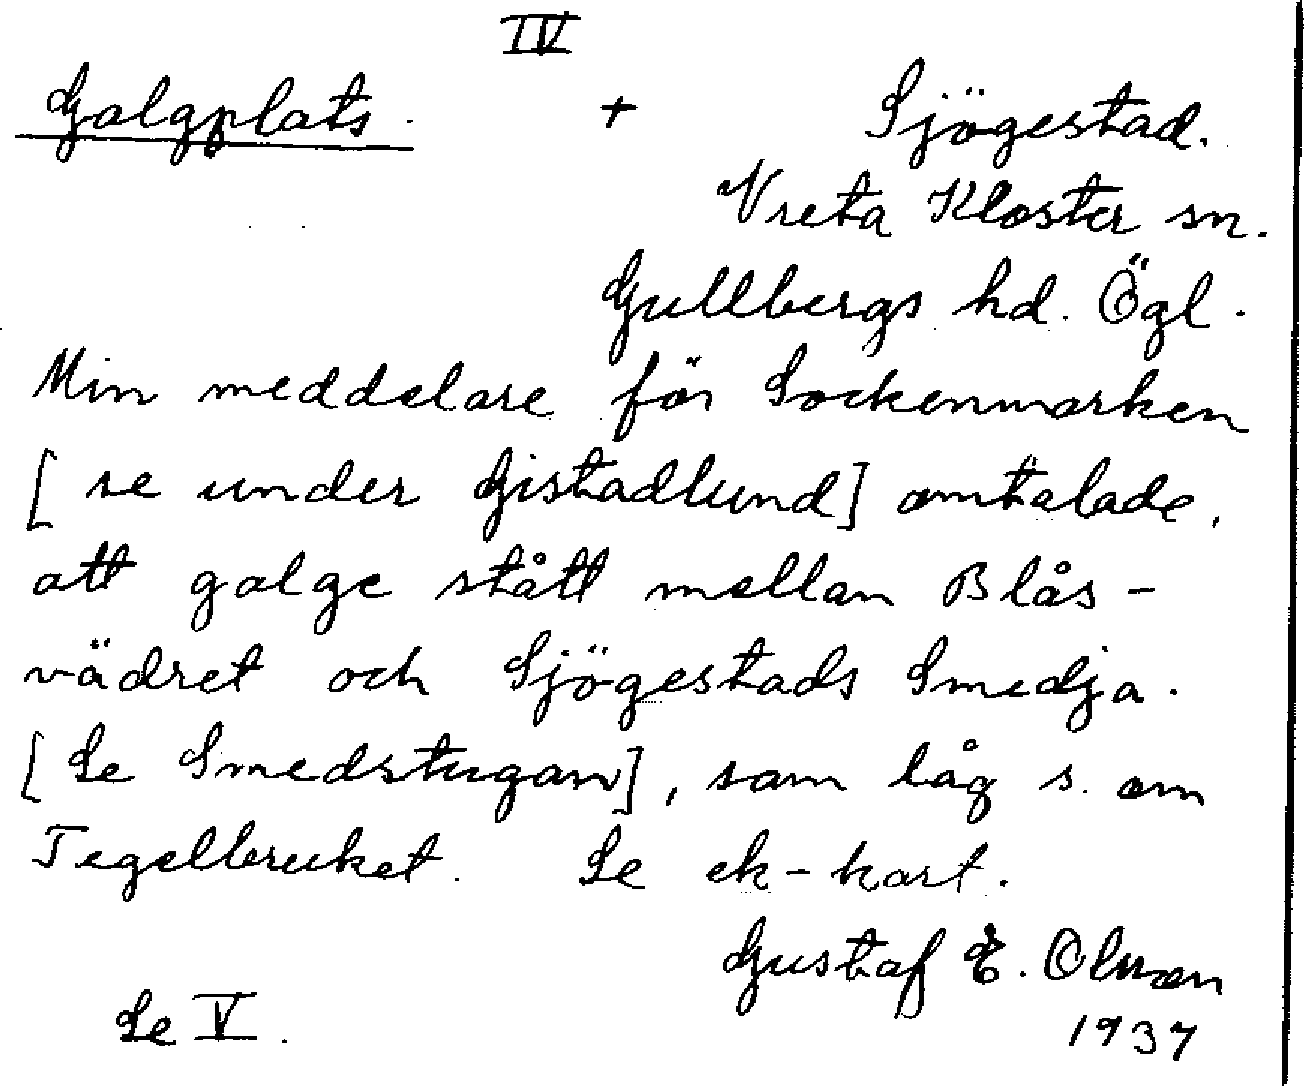 IV
Galgplats. + Sjögestad.
Vreta Kloster sn.
Gullbergs hd. Ögl.
Min meddelare för Sockenmarken
[se under Gistadlund] omtalade,
att galge stått mellan Blås-
vädret och Sjögestads Smedja.
[Se Smedstugan], som låg s. om
Tegelbruket. Se ek-kart.
Gustaf E. Olsson
Se V. 1937